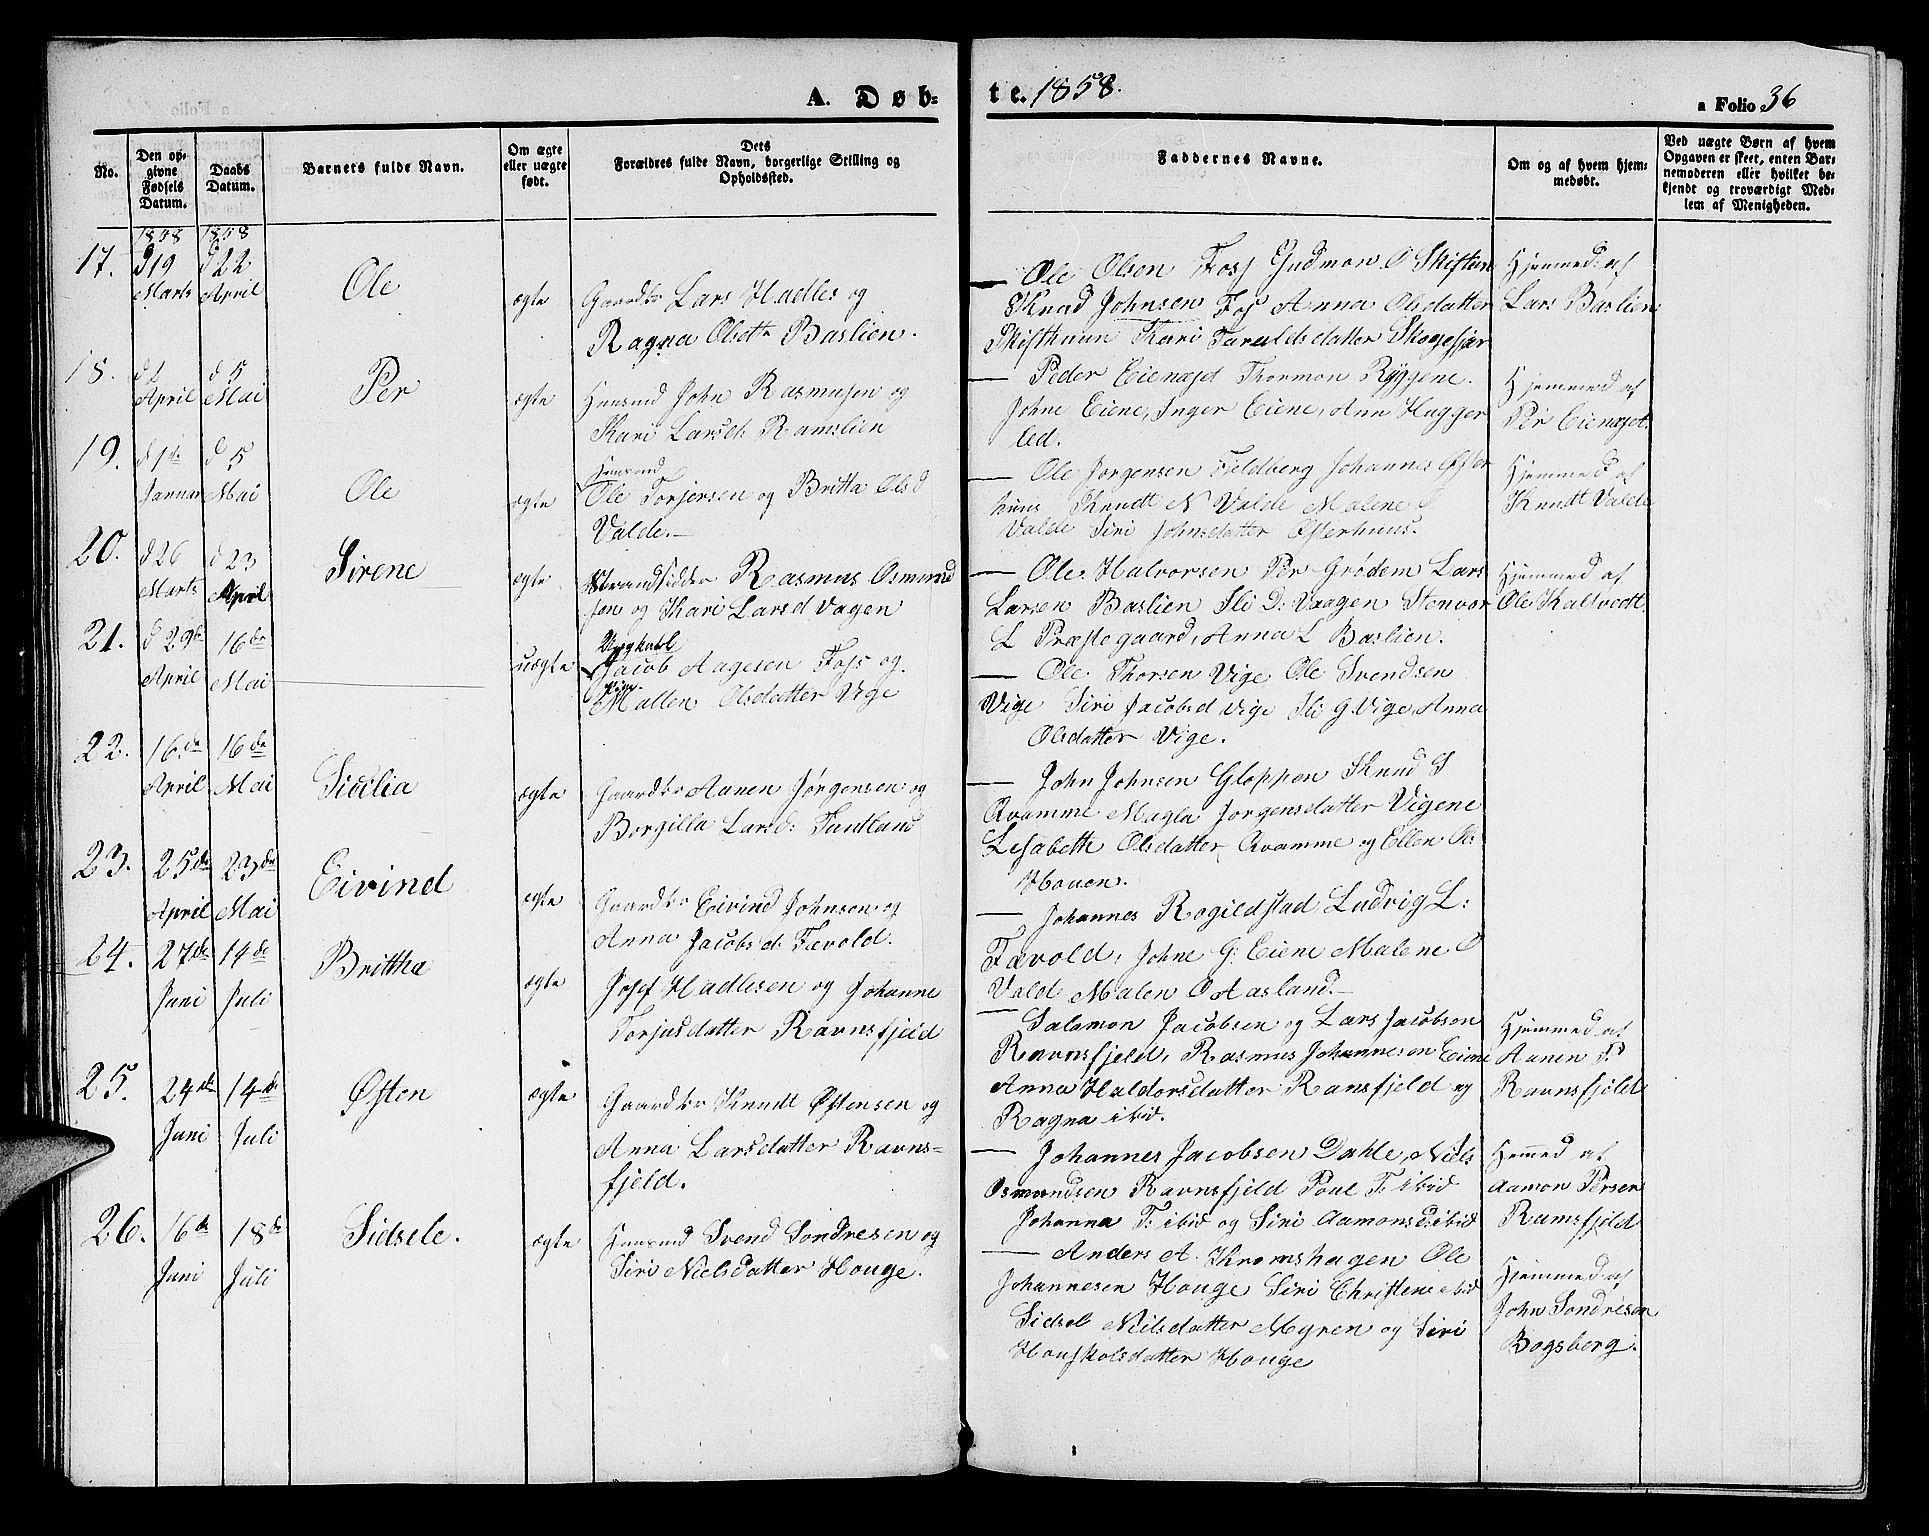 A. Døb-
te. 1858.
a Folio 36
No.
Den op-
givne
Fødsels
Datum.
Daabs
Datum.
Barnets fulde Navn.
Om ægte
eller uægte
født.
Dets
Forældres fulde Navn, borgerlige Stilling og
Opholdssted.
Faddernes Navne.
Om og af hvem hjem-
medøbt.
Ved uægte Børn af hvem
Opgaven er skeet, enten Bar-
nemoderen eller hvilket be-
kjendt og troværdigt Med-
lem af Menigheden.
1858 1858
17.
d 19
Marts
d 22
April
Ole
ægte
Gaardbr Lars Hadles og
Ragna Olsdtr Baslien.
— Ole Olsen Fosj Gudmon O Skiftun
Knud Johnsen Fos Anna Olsdatter
Skiftkun Kari Taraldsdatter
Hjemmed: af
Lars Baslien
18.
April
d 5
Mai
Per
ægte
Huusmd John Rasmusen og
Kari Larsd: Ramslien
— Peder Eienæset Thormon Ryggene.
Johne Eiene, Inger Eiene, Ann Hugger
led.
Hjemmed af
Per Eienæset
19.
d 1de
Januar
d 5
Mai
Ole
ægte
Huusmd
Ole Torjersen og Britta Olsd
Valde.—
— Ole Jorgensen Fjeldberg Johannes Øster
huus Knudt N Valde Malene
Valde Siri Johnsdatter Østerhuus.
Hjemmed af
Knudt Valde
20.
d 26
Marts
d 23
April
Sirene
ægte
Strandsidder Rasmus Osmund
sen og Kari Larsd Vagen
— Ole Halvorsen Per Grødem Lars
Larsen Baslien Ili D: Vaagen Stenvor
L Præstegaard, Anna L Baslien.
Hjemmed af
Ole Kaltvedt
21.
d 29de
April
16de
Mai
uægte
Ungkarl
Jacob Aagesen Fojs og
Pige
Mallen Olsdatter Vige
— Ole Thorsen Vige Ole Svendsen
Vige Siri Jacobsd Vige Ili G. Vige, Anna
Olsdatter Vige.
22.
16de
April
16de
Mai
Sicilia
ægte
Gaardbr Aanen Jørgensen og
Borgilla Larsd: Tuntland
— John Johnsen Gloppen Knud S
Qvamme Magla Jorgensdatter Vigene
Lisabeth Olsdatter Qvamme og Ellen O:
Hauen.
23.
25de
April
23de
Mai
Eivind
ægte
Gaardbr Eivind Johnsen og
Anna Jacobsd: Tævold.
— Johannes Rogildstad Ludvig L:
Tævold, Johne G: Eiene Malene O
Vald Malen O Aasland.—
24.
27de
Juni
14de
Juli
Brittha
ægte
Josef Hadlesen og Johanne
Torjusdatter Ravnsfjeld
— Salamon Jacobsen og Lars Jacobsen
Ravnsfjeld, Rasmus Johannesen Eiene
Anna Haldorsdatter Ransfjeld og
Ragna ibid.
Hjemmed af
Aanen
Ravnsfjeld
25.
24de
Juni
14de
Juli
Østen
ægte
Gaardbr Knudt Østensen og
Anna Larsdatter Ravns-
fjeld.
— Johannes Jacobsen Dahle, Niels
Osmundsen Ravnsfjeld Poul T: ibid
Johanna T: ibid og Siri Aamonsd: ibid
Hemmed af
Aamon Persen
Ramsfjeld
26.
16de
Juni
18de
Juli
Sidsele.
ægte
Huusmd Svend Sondresen og
Siri Nielsdatter Houge.
— Anders A. Kromshagen Ole
Johannesen Houge Siri Christens ibid
Sidsel Nielsdatter Myren og Siri
Houskolsdatter Houge
Hjemmed af
John Sondresen
Bogsberg.